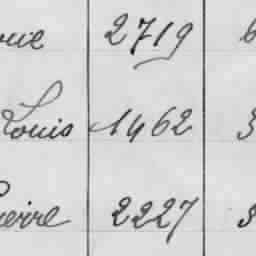 2719 6
Louis 1462 3
Pierre 2227 3